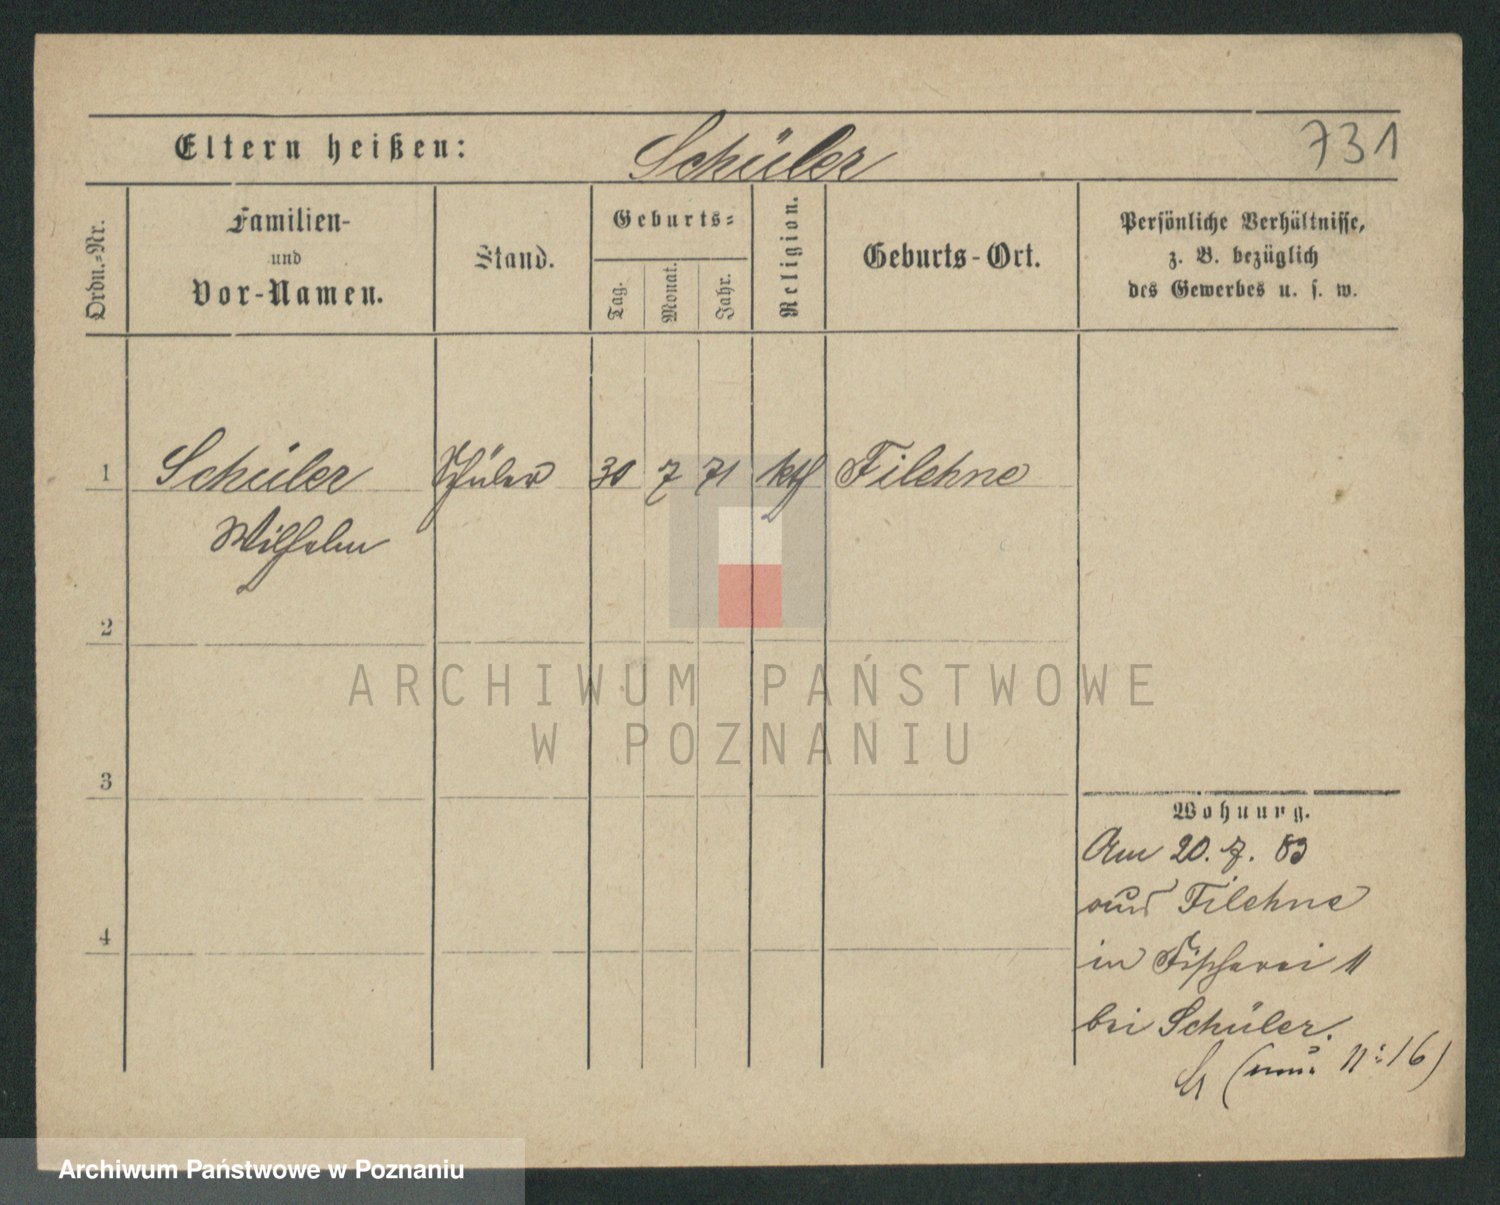 Eltern heißen: Schüler 731
Ordn.-Nr.
Familien-
und
Vor-Namen.
Stand.
Geburts-
Tag.
Monat.
Jahr.
Religion.
Geburts-Ort.
Persönliche Verhältnisse,
z. B. bezüglich
des Gewerbes u. s. w.
1 Schüler Schüler 30 7 71 kth Filehne
Wilhelm
2
ARCHIWUM PAŃSTWOWE
W POZNANIU
3
Wohnung.
Am 20. 7. 83
aus Filehne
4
in Fischerei 11
bei Schüler.
(neu: 16)
Archiwum Państwowe w Poznaniu